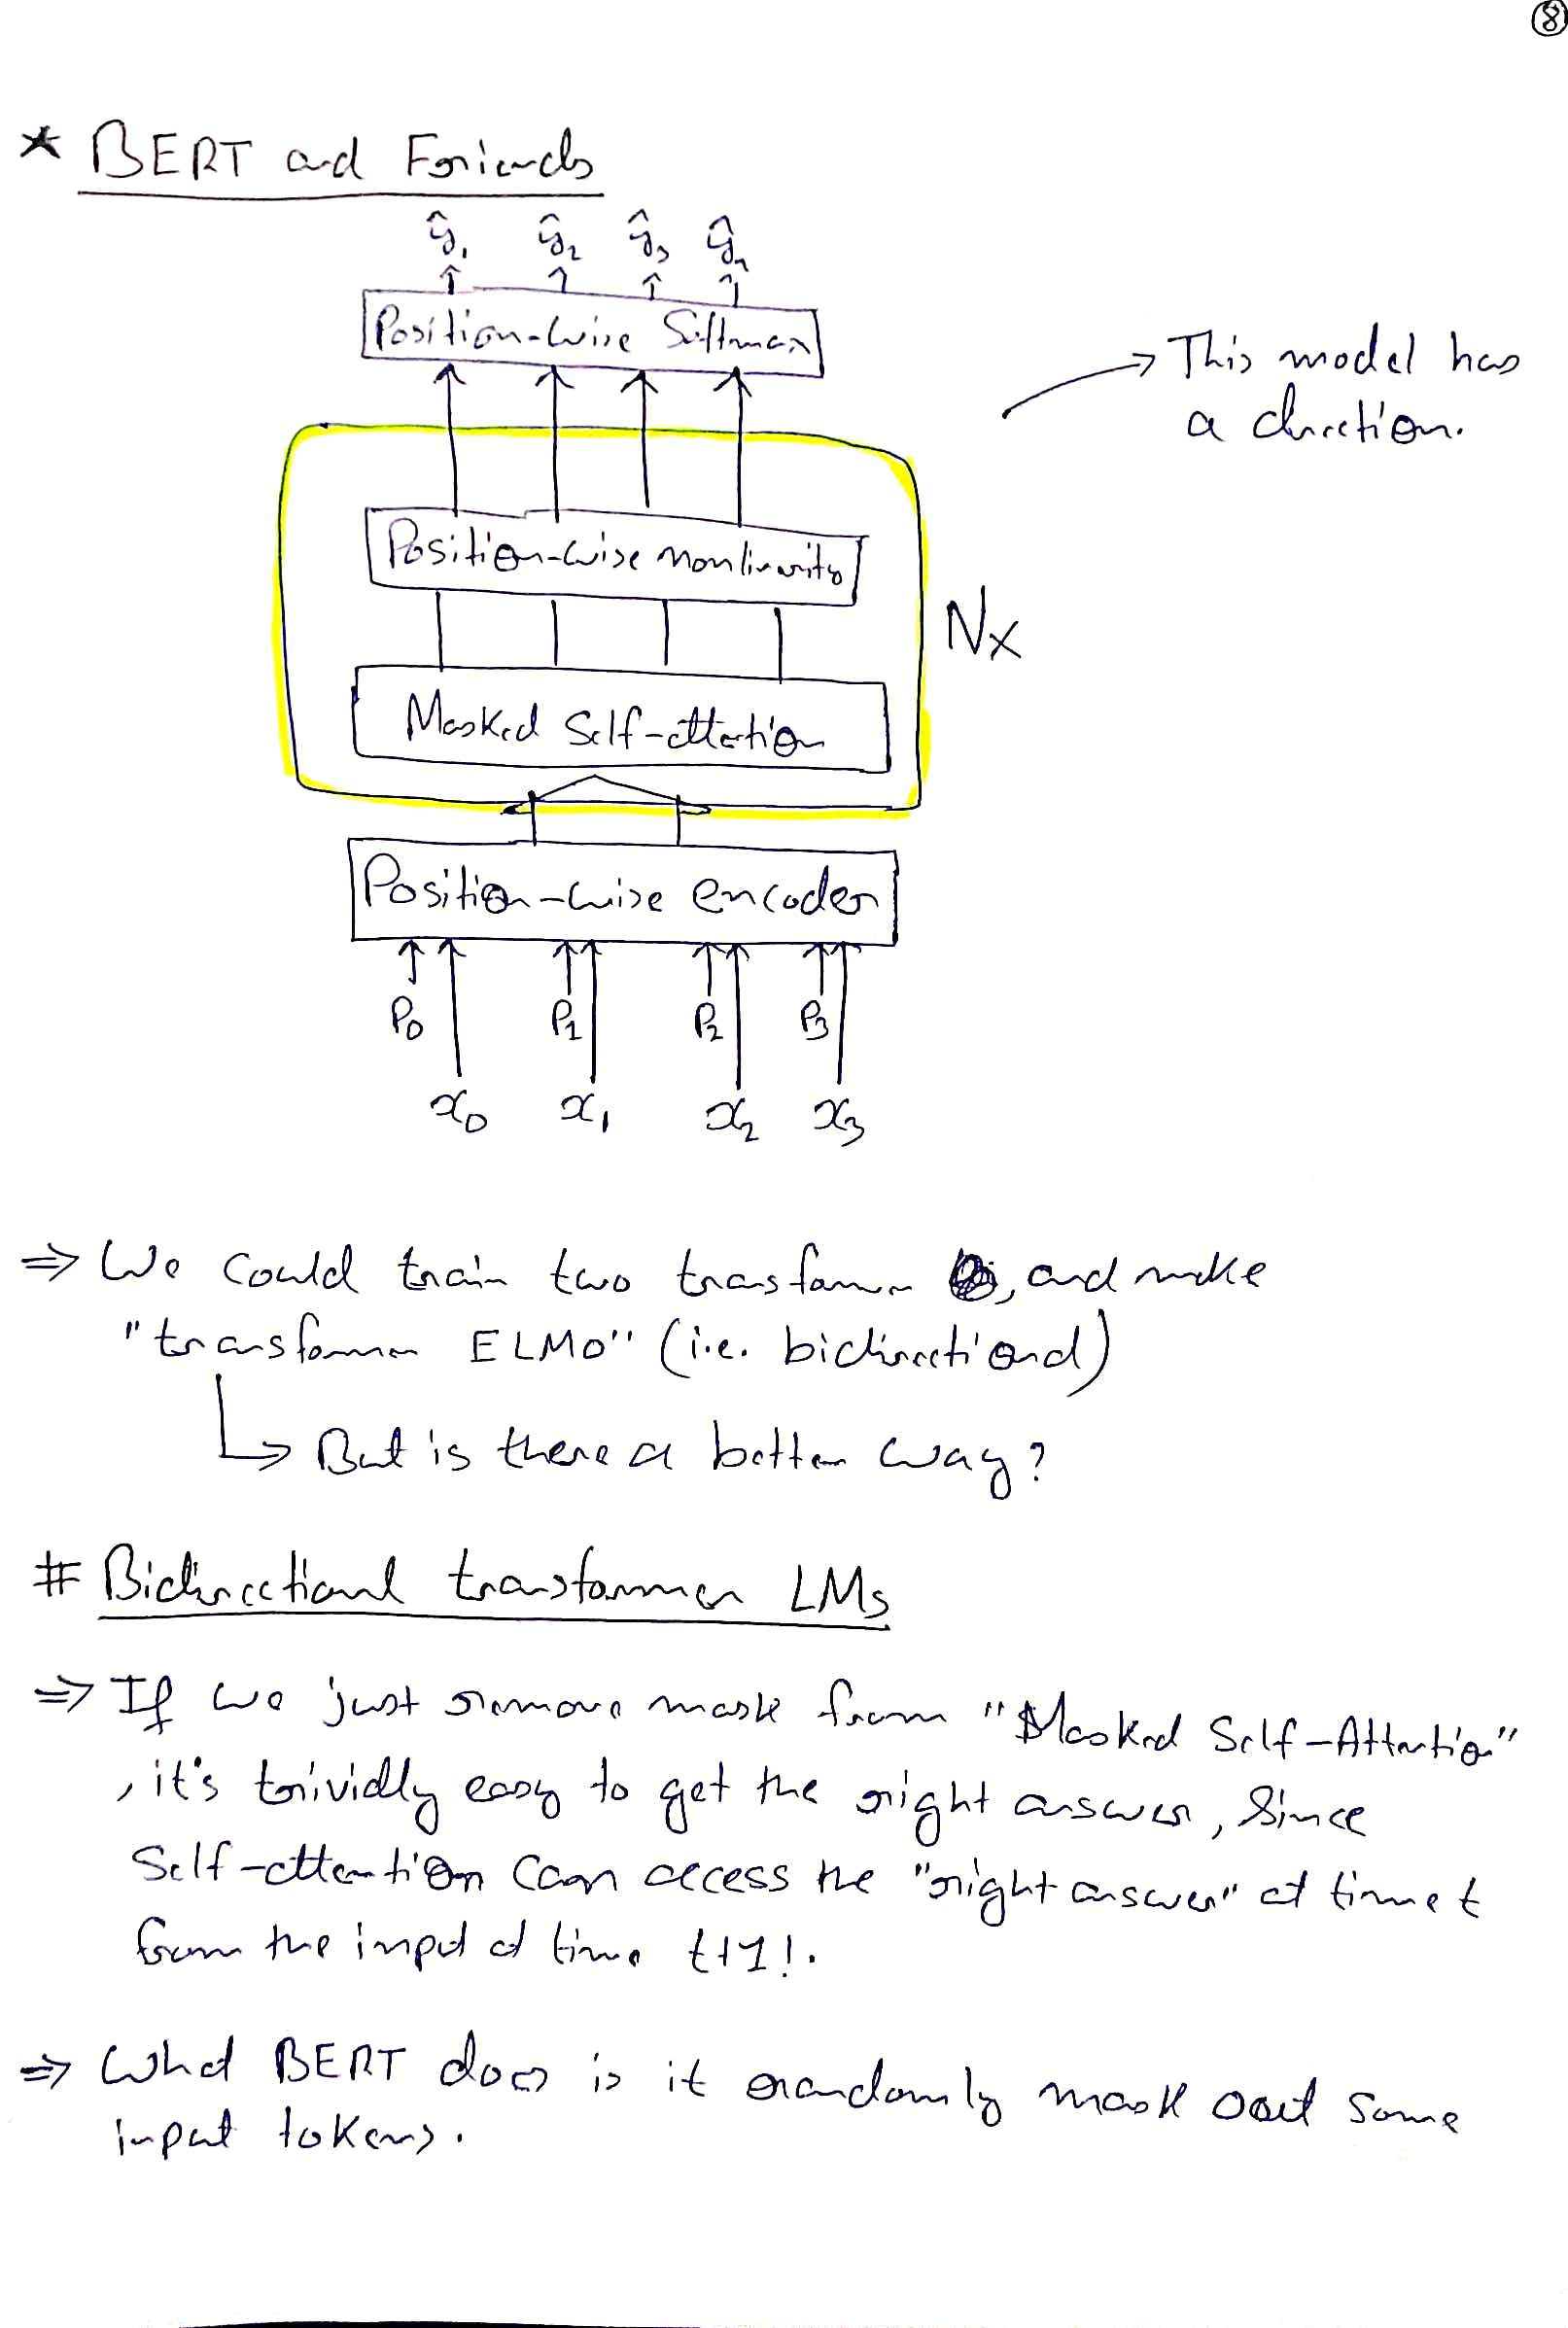 8
* BERT and Friends
ŷ₁ ŷ₂ ŷ₃ ŷ₄
Position-wise Softmax
This model has
a direction.
Position-wise nonlinearity
Nx
Masked Self-attention
Position-wise encoder
P₀ P₁ P₂ P₃
x₀ x₁ x₂ x₃
⇒ We could train two transformer , and make
"transformer ELMO" (i.e. bidirectional)
↳ But is there a better way?
# Bidirectional transformer LMs
⇒ If we just remove mask from "Masked Self-Attention"
, it's trivially easy to get the right answer, Since
Self-attention can access the "right answer" at time t
from the input at time t+1!.
⇒ What BERT does is it randomly mask out some
input tokens.